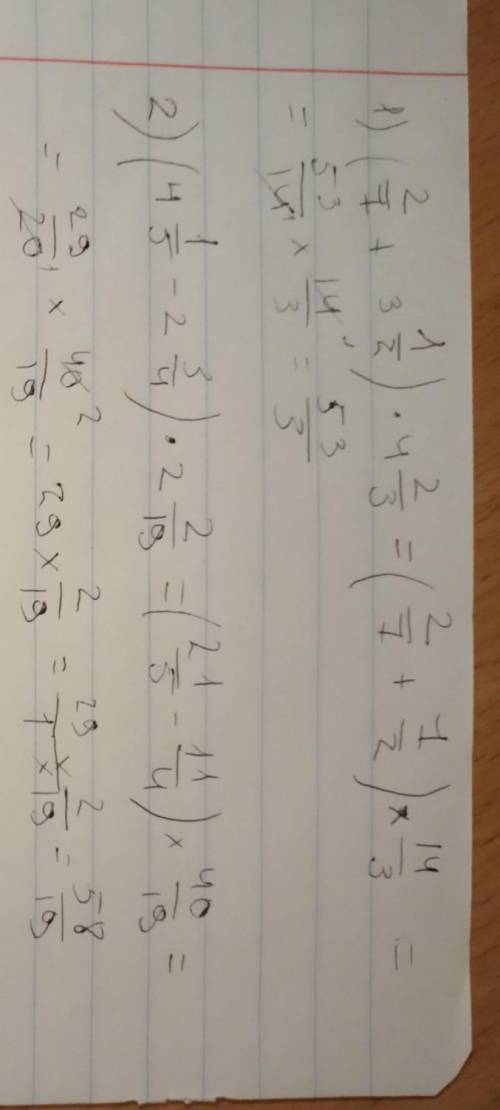 1) (2/7 + 3 1/2) · 4 2/3 = (2/7 + 7/2) × 14/3 =
= 53/14 × 14/3 = 53/3
2) (4 1/5 - 2 3/4) · 2 2/19 = (21/5 - 11/4) × 40/19 =
= 29/20 × 40/19 = 29 × 2/19 = 29/1 × 2/19 = 58/19